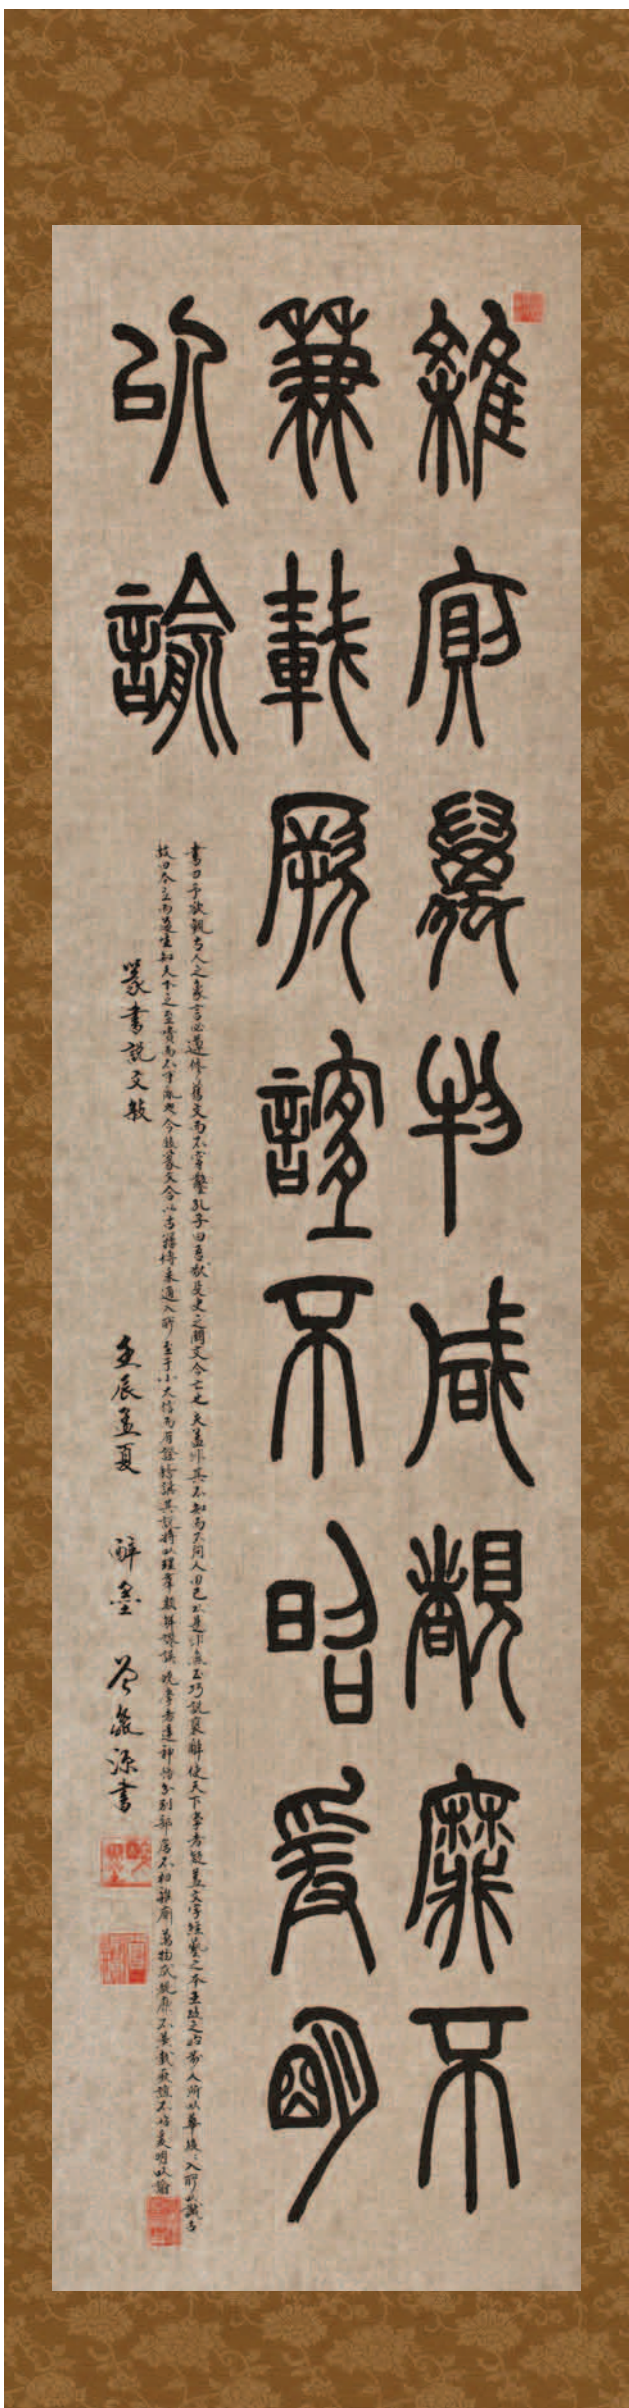 雜廁萬物咸覩靡不
兼載厥誼不昭爰明
以諭
書曰予欲觀古人之象言必遵修舊文而不穿鑿孔子曰吾猶及史之闕文今亡也夫蓋非其不知而不問人用己私是非無正巧說衺辭使天下學者疑蓋文字經藝之本王政之始前人所以垂後〻人所以識古
故曰本立而道生知天下之至嘖而不可亂也今敘篆文合以古籀博采通人所至于小大信而有證稽譔其說將以理羣類解謬誤曉學者達神恉分別部居不相雜廁萬物咸覩靡不兼載厥誼不昭爰明以諭
篆書說文敍
壬辰孟夏 醉墨 源書